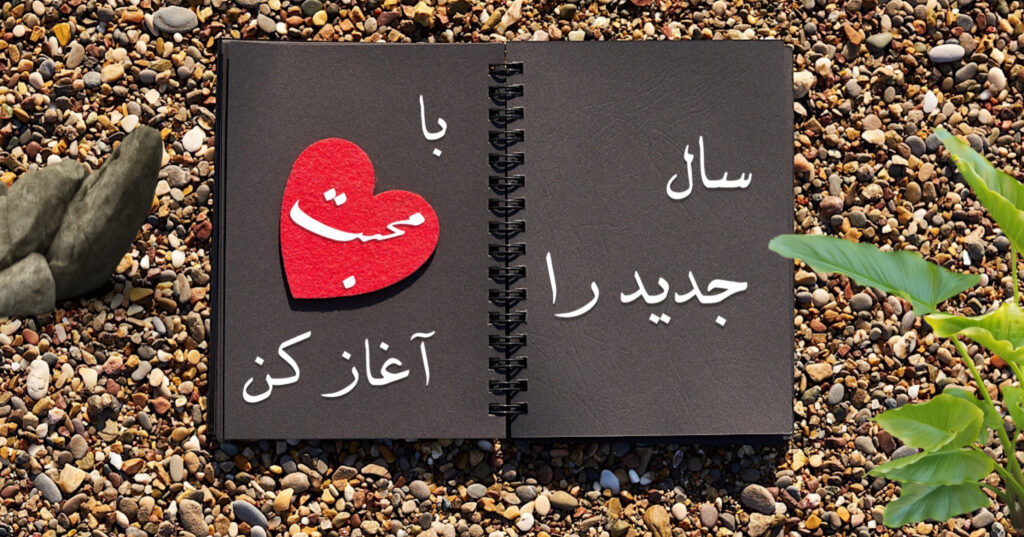 سال
جدید را
با
محبت
آغاز کن